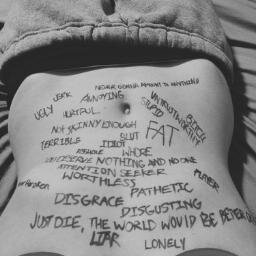 NEVER GONNA AMOUNT TO ANYTHING
JERK ANNOYING
UGLY HURTFUL STUPID UNTRUSTWORTHY
NOT SKINNY ENOUGH FAT BITCH
TERRIBLE IDIOT SLUT
WHORE
YOU DESERVE NOTHING AND NO ONE
ATTENTION SEEKER
WORTHLESS
PATHETIC
DISGRACE
DISGUSTING
JUST DIE, THE WORLD WOULD BE BETTER
LIAR
LONELY